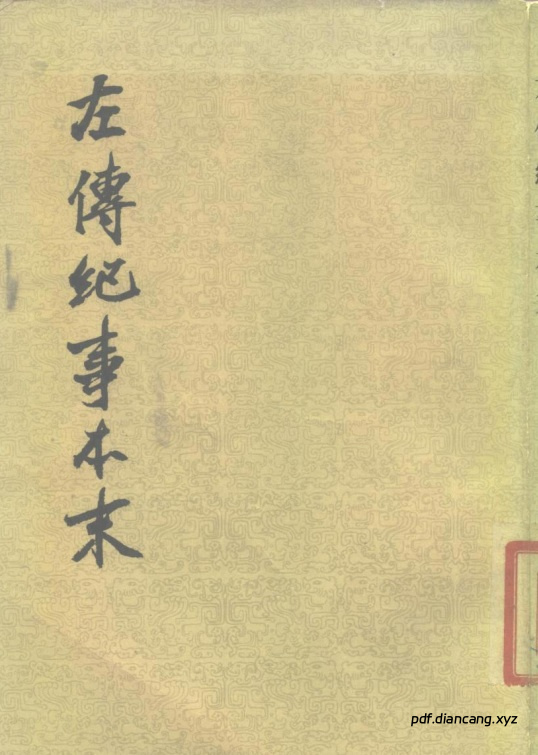 左傳紀事本末
pdf.diancang.xyz